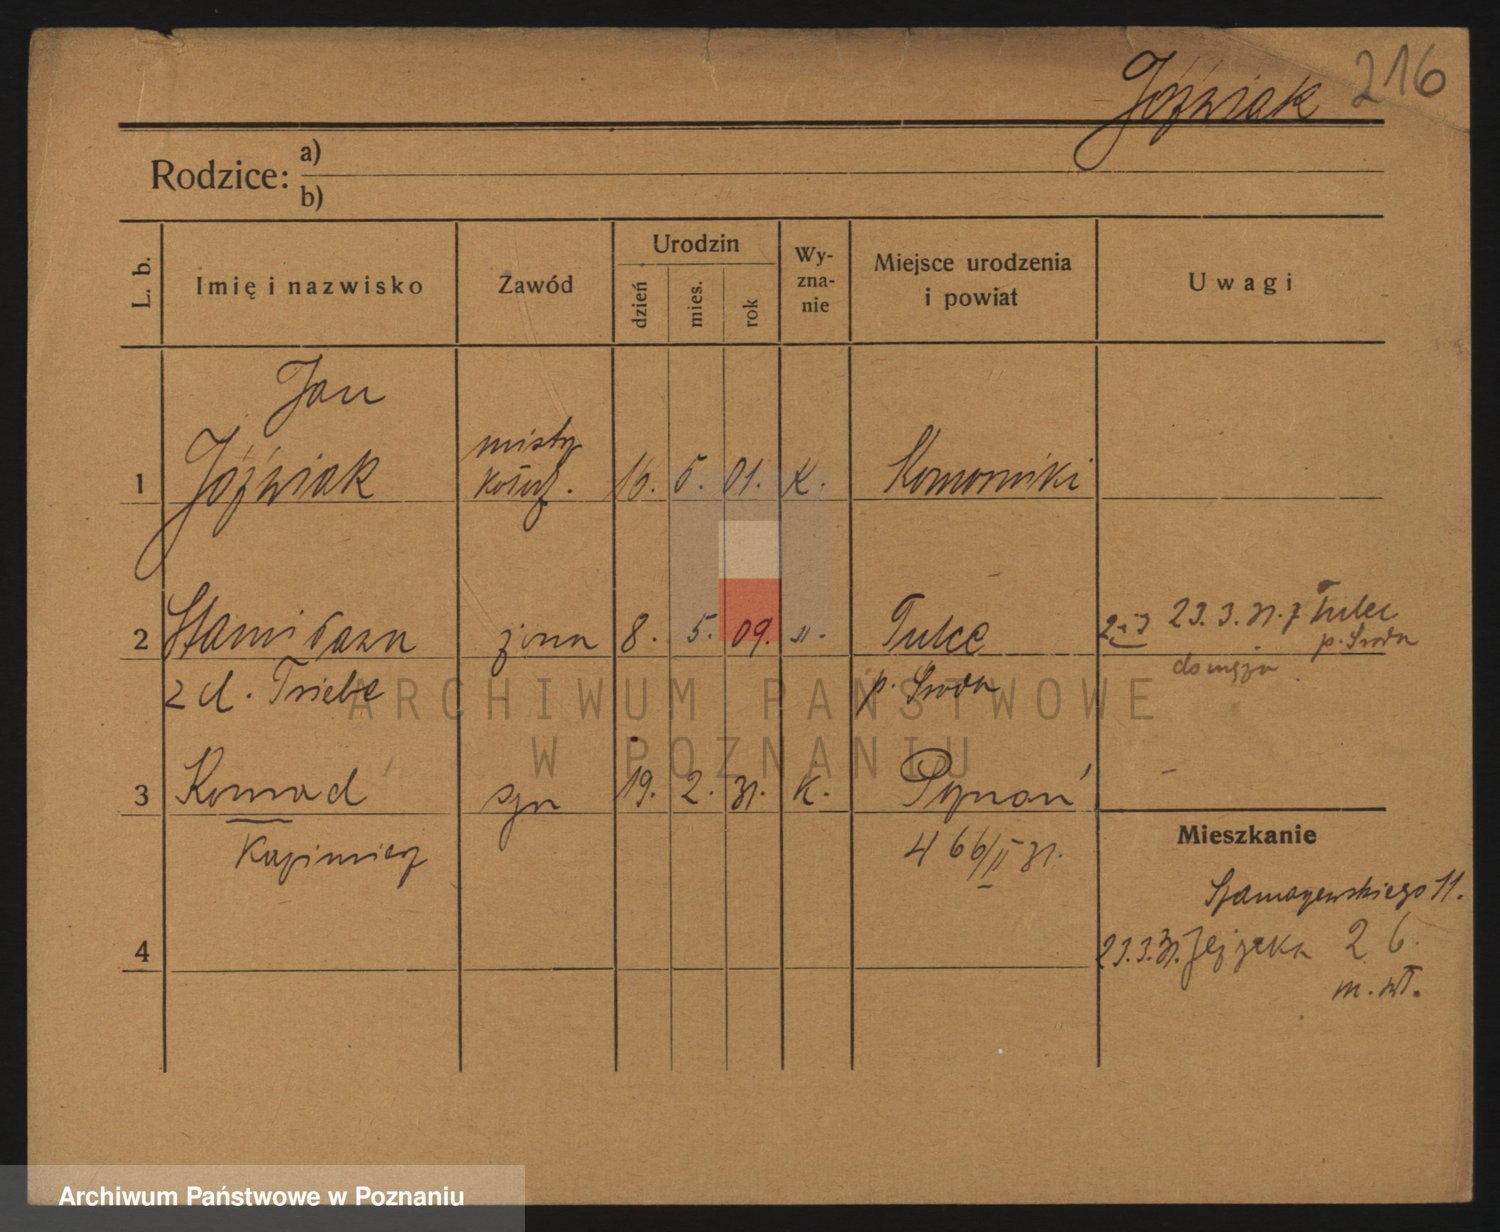 Jóźwiak 216
Rodzice: a)
b)
L. b.
Imię i nazwisko
Zawód
Urodzin
dzień
mies.
rok
Wy-
zna-
nie
Miejsce urodzenia
i powiat
Uwagi
Jan
1 Jóźwiak
mistrz
kołodz.
16. 5. 01. K.
Komorniki
2 Stanisława żona 8. 5. 09. ".
Tulce
2 i 3 23.3.31. z Tulec
p. Środa
do męża
z d. Triebe
p. Środa
3 Konrad syn 19. 2. 31. K. Poznań
Kazimierz
466/II 31.
Mieszkanie
Szamarzewskiego 11.
4
23.3.31. 26.
m. wł.
ARCHIWUM PAŃSTWOWE
W POZNANIU
Archiwum Państwowe w Poznaniu